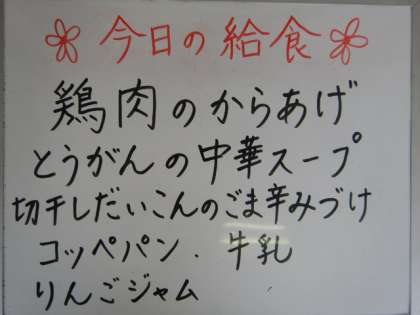 今日の給食
鶏肉のからあげ
とうがんの中華スープ
切干しだいこんのごま辛みづけ
コッペパン．牛乳
りんごジャム